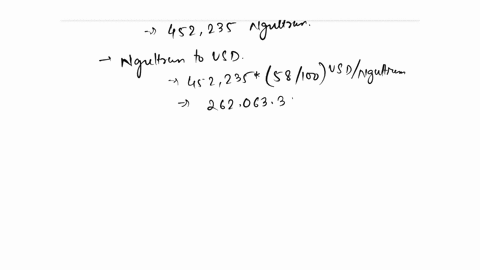 → 452,235 Ngultrum.
→ Ngultrum to USD.
→ 452,235*(58/100) USD/Ngultrum
→ 262.063.3